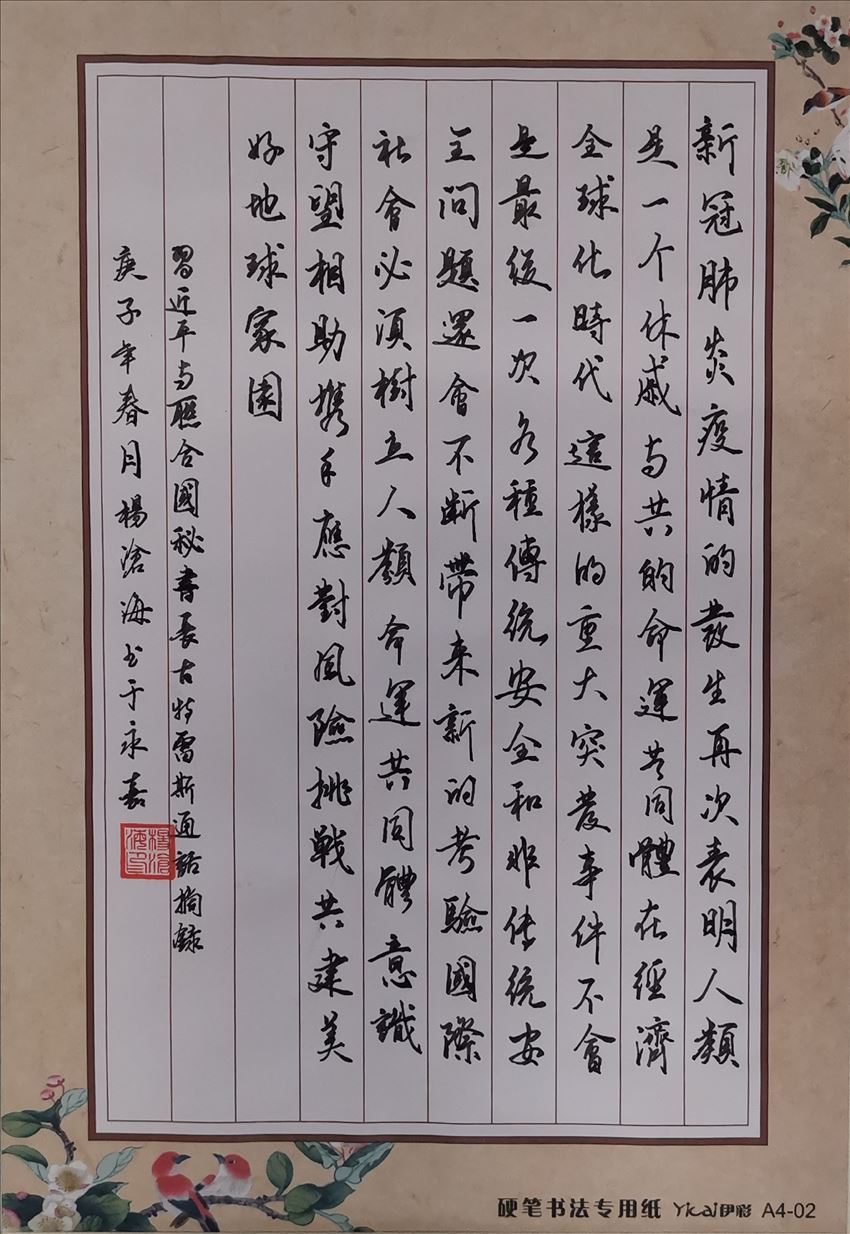 新冠肺炎疫情的發生再次表明人類
是一个休戚与共的命運共同體在經濟
全球化時代這樣的重大突發事件不會
是最後一次各種傳統安全和非传統安
全问題還會不断帶来新的考驗國際
社會必須樹立人類命運共同體意識
守望相助携手應對風險挑戰共建美
好地球家園
習近平与聯合國秘書長古特雷斯通話摘録
庚子年春月楊滄海书于永嘉
楊滄海印
硬笔书法专用纸 Yicai伊彩 A4-02